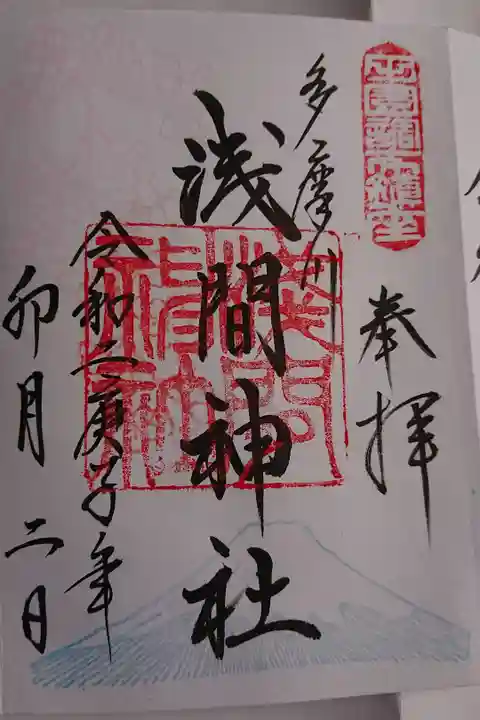 奉拝
多摩川
浅間神社
令和二庚子年
卯月二日